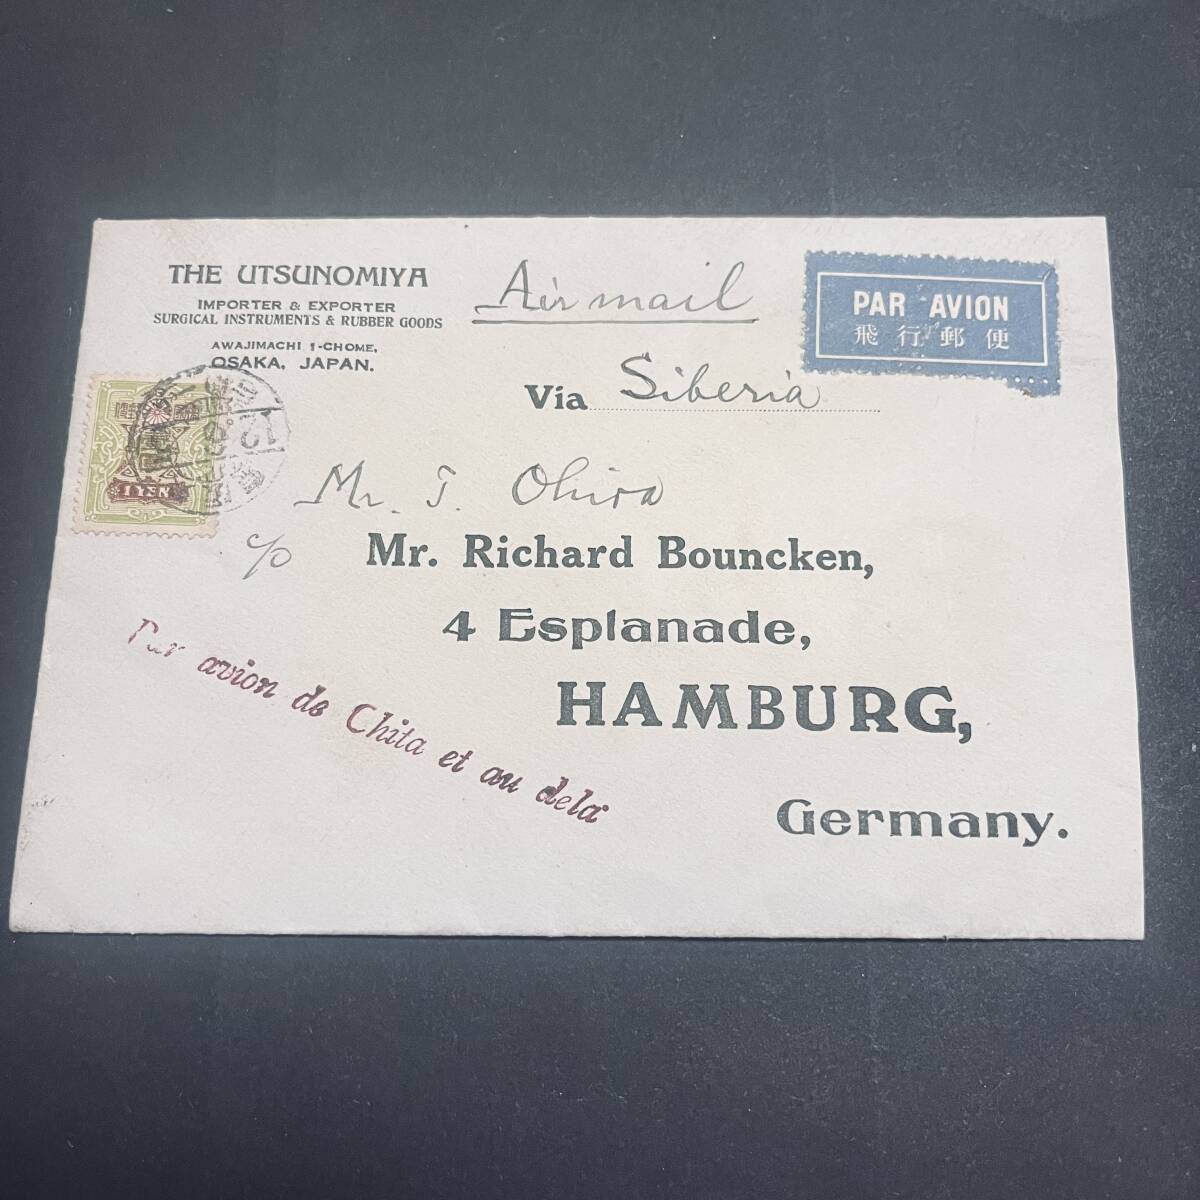 THE UTSUNOMIYA
IMPORTER & EXPORTER
SURGICAL INSTRUMENTS & RUBBER GOODS
AWAJIMACHI 1-CHOME,
OSAKA, JAPAN.
Air mail
PAR AVION
飛行郵便
Via Siberia
12
1 YEN
Mr. T. Ohira
c/o Mr. Richard Bouncken,
4 Esplanade,
HAMBURG,
Germany.
Par avion de Chita et au delà